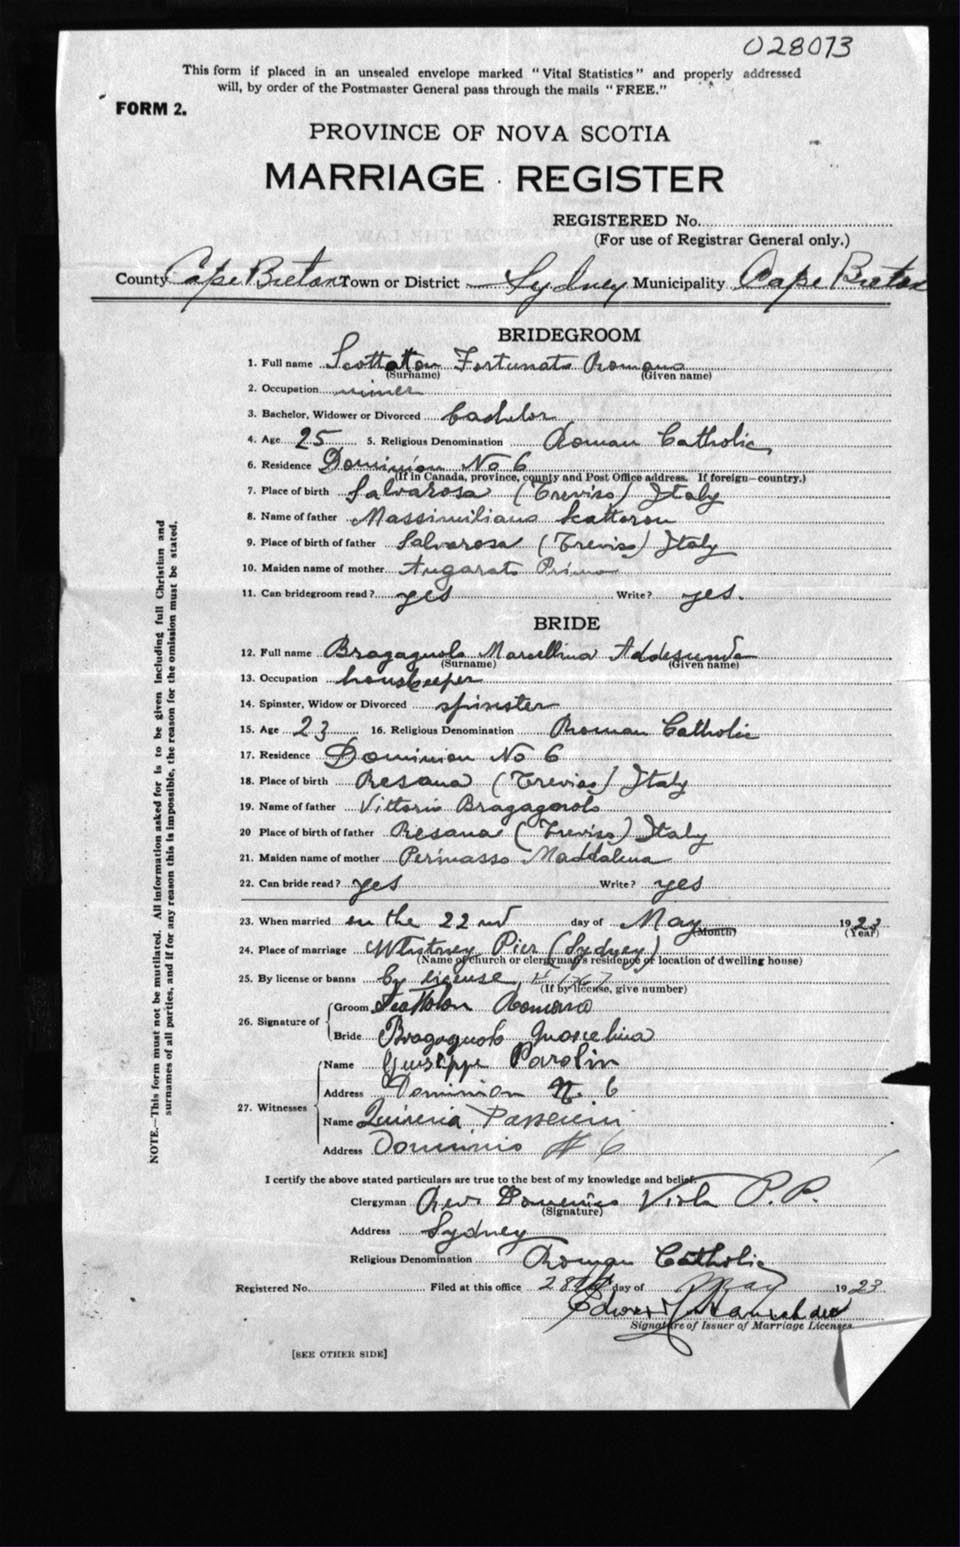 028073
This form if placed in an unsealed envelope marked "Vital Statistics" and properly addressed
will, by order of the Postmaster General pass through the mails "FREE."
FORM 2.
PROVINCE OF NOVA SCOTIA
MARRIAGE REGISTER
REGISTERED No.
(For use of Registrar General only.)
County Cape Breton Town or District Sydney Municipality Cape Breton
BRIDEGROOM
1. Full name Scottoton Fortunato Romano
(Surname) (Given name)
2. Occupation miner
3. Bachelor, Widower or Divorced bachelor
4. Age 25 5. Religious Denomination Roman Catholic
6. Residence Dominion No 6
(If in Canada, province, county and Post Office address. If foreign—country.)
7. Place of birth Salvarosa (Treviso) Italy
8. Name of father Massimiliano
9. Place of birth of father Salvarosa (Treviso) Italy
10. Maiden name of mother Augarato
11. Can bridegroom read? yes Write? yes.
BRIDE
12. Full name Bragagnolo Marcellina
(Surname) (Given name)
13. Occupation housekeeper
14. Spinster, Widow or Divorced spinster
15. Age 23 16. Religious Denomination Roman Catholic
17. Residence Dominion No 6
18. Place of birth Resana (Treviso) Italy
19. Name of father Vittorio Bragagnolo
20 Place of birth of father Resana (Treviso) Italy
21. Maiden name of mother Perinasso Maddalena
22. Can bride read? yes Write? yes
23. When married on the 22nd day of May 1923
(Month) (Year)
24. Place of marriage Whitney Pier (Sydney)
(Name of church or clergyman's residence or location of dwelling house)
25. By license or banns by license
(If by license, give number)
26. Signature of
Groom Romano
Bride Bragagnolo
27. Witnesses
Name Giuseppe Parolin
Address Dominion N. 6
Name
Address Dominio # 6
I certify the above stated particulars are true to the best of my knowledge and belief.
Clergyman Rev Domenico Viola P. P.
(Signature)
Address Sydney
Religious Denomination Roman Catholic
Registered No. Filed at this office 28th day of May 1923
Signature of Issuer of Marriage Licenses
[SEE OTHER SIDE]
NOTE.—This form must not be mutilated. All information asked for is to be given including full Christian and
surnames of all parties, and if for any reason this is impossible, the reason for the omission must be stated.